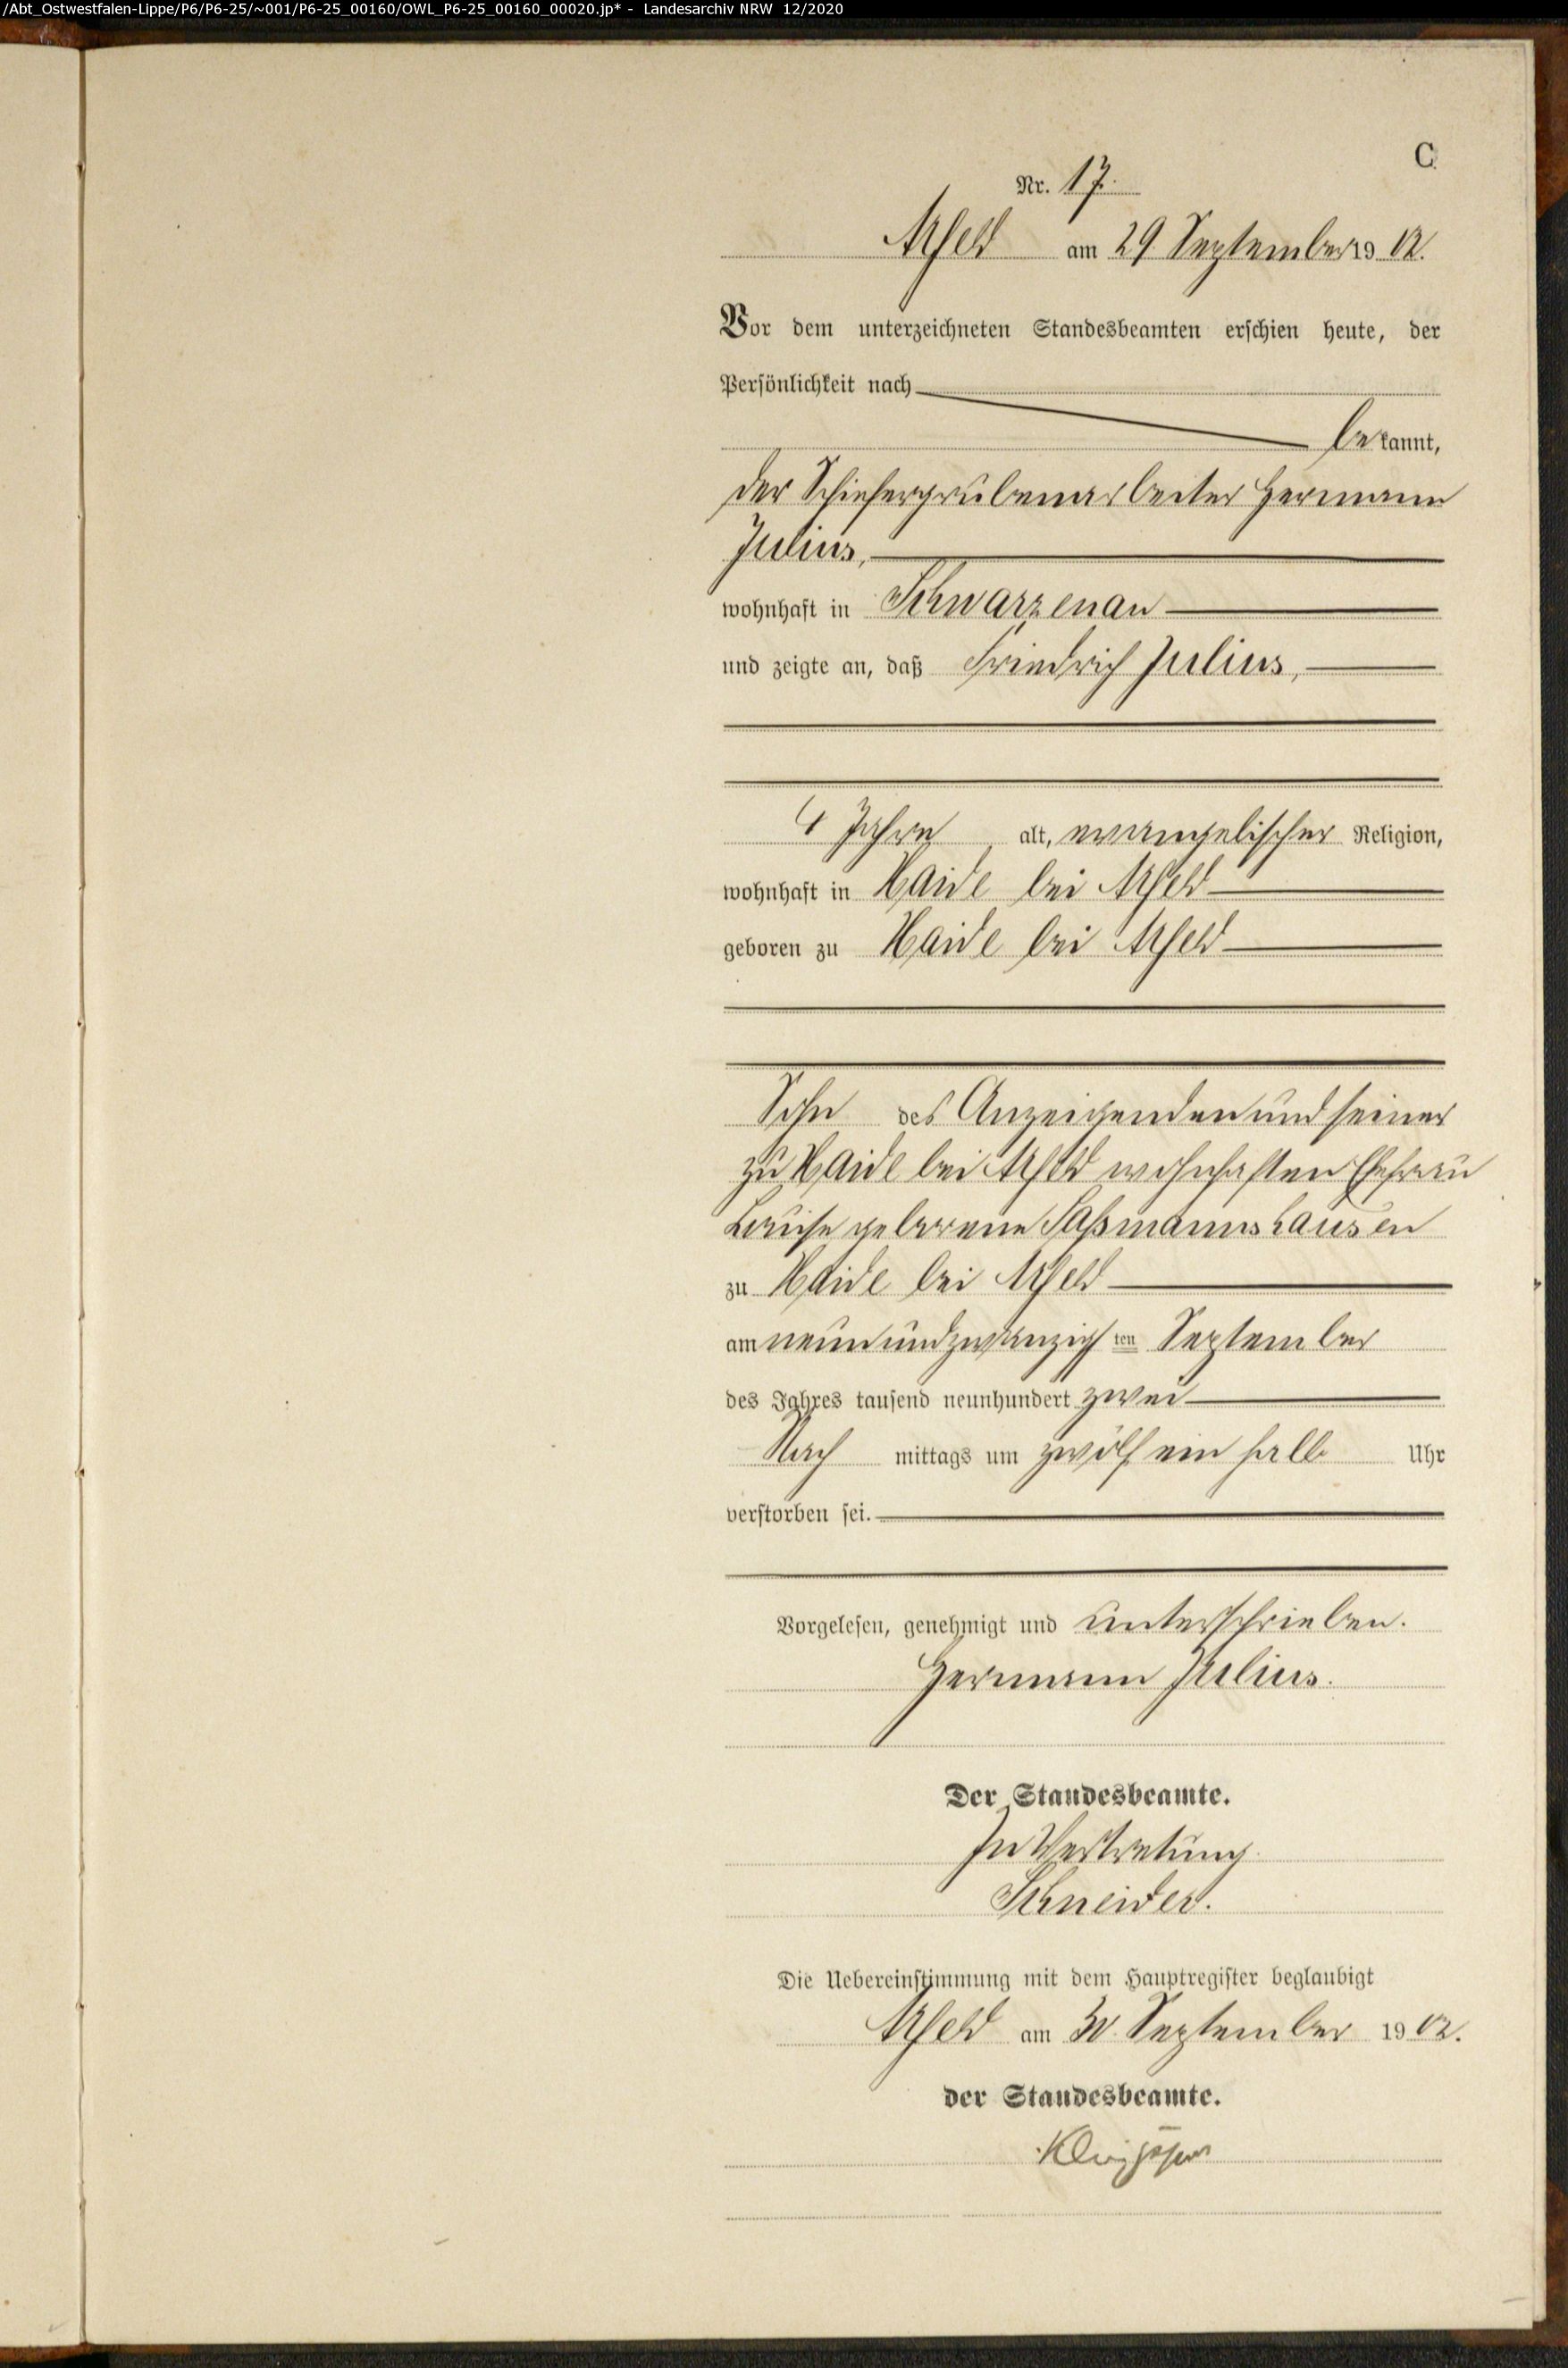 /Abt_Ostwestfalen-Lippe/P6/P6-25/~001/P6-25_00160/OWL_P6-25_00160_00020.jp* - Landesarchiv NRW 12/2020
C.
Nr. 17.
Arfeld am 29. September 1902.
Vor dem unterzeichneten Standesbeamten erschien heute, der
Persönlichkeit nach
bekannt,
der Schiefergrubenarbeiter Hermann
Julius,
wohnhaft in Schwarzenau
und zeigte an, daß Friedrich Julius,
4 Jahre, alt, evangelischer Religion,
wohnhaft in Haide bei Arfeld
geboren zu Haide bei Arfeld
Sohn des Anzeigenden und seiner
zu Haide bei Arfeld wohnhaften Ehefrau
Louise geborene Saßmannshausen
zu Haide bei Arfeld
am neunundzwanzigsten September
des Jahres tausend neunhundert zwei
Nach mittags um zwölf ein halb Uhr
verstorben sei.
Vorgelesen, genehmigt und unterschrieben.
Hermann Julius.
Der Standesbeamte.
In Vertretung
Schneider.
Die Uebereinstimmung mit dem Hauptregister beglaubigt
Arfeld am 30. September 1902.
der Standesbeamte.